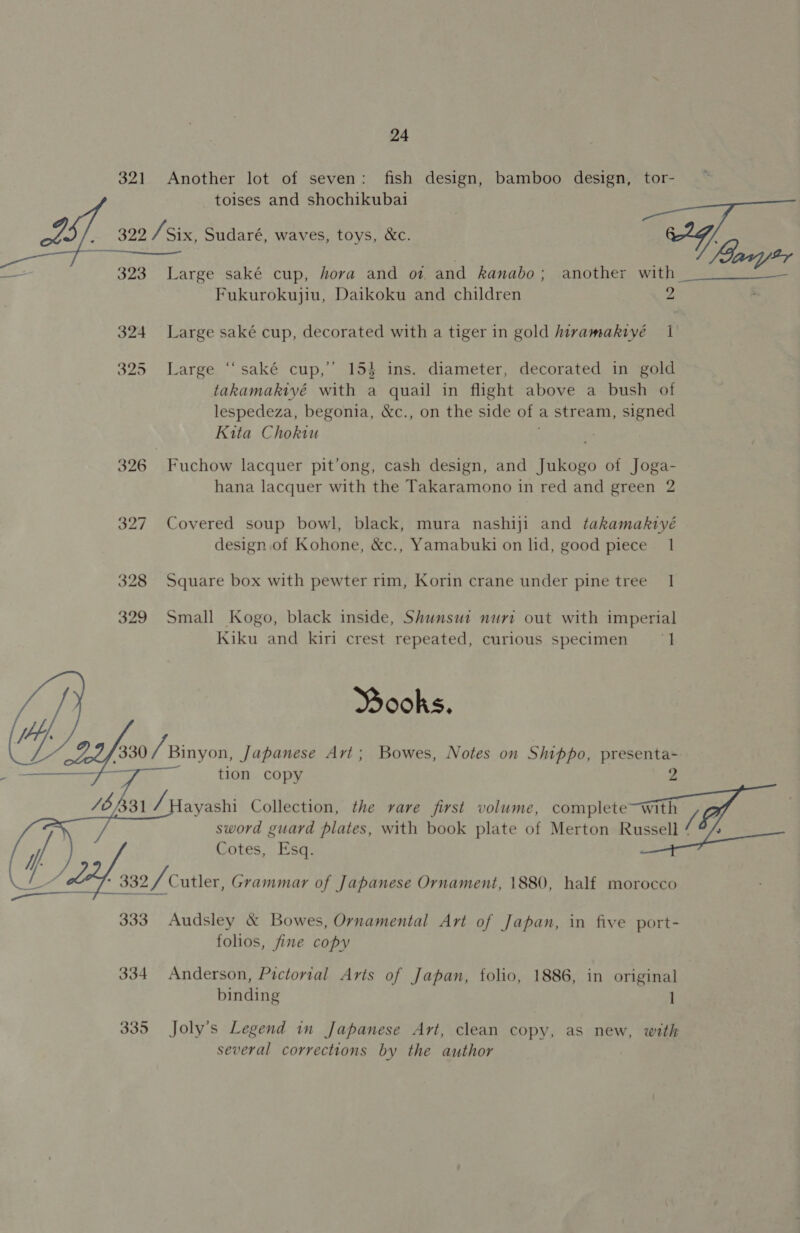 24
321 Another lot of seven: fish design, bamboo design, tor-
toises and shochikubai
322 Six, Sudaré, waves, toys, &c.
323 Large saké cup, hora and oi and kanabo; another with
Fukurokujiu, Daikoku and children 2
324 Large saké cup, decorated with a tiger in gold hiramakiyé 1
325 Large “saké cup,” 15½ ins. diameter, decorated in gold
takamakiyé with a quail in flight above a bush of
lespedeza, begonia, &c., on the side of a stream, signed
Kita Chokiu
326 Fuchow lacquer pit'ong, cash design, and Jukogo of Joga-
hana lacquer with the Takaramono in red and green 2
327 Covered soup bowl, black, mura nashiji and takamakiyé
design of Kohone, &c., Yamabuki on lid, good piece 1
328 Square box with pewter rim, Korin crane under pine tree 1
329 Small Kogo, black inside, Shunsui nuri out with imperial
Kiku and kiri crest repeated, curious specimen 1
Books.
330 Binyon, Japanese Art; Bowes, Notes on Shippo, presenta-
tion copy 2
331 Hayashi Collection, the rare first volume, complete with
sword guard plates, with book plate of Merton Russell
Cotes, Esq.
332 Cutler, Grammar of Japanese Ornament, 1880, half morocco
333 Audsley & Bowes, Ornamental Art of Japan, in five port-
folios, fine copy
334 Anderson, Pictorial Arts of Japan, folio, 1886, in original
binding 1
335 Joly's Legend in Japanese Art, clean copy, as new, with
several corrections by the author